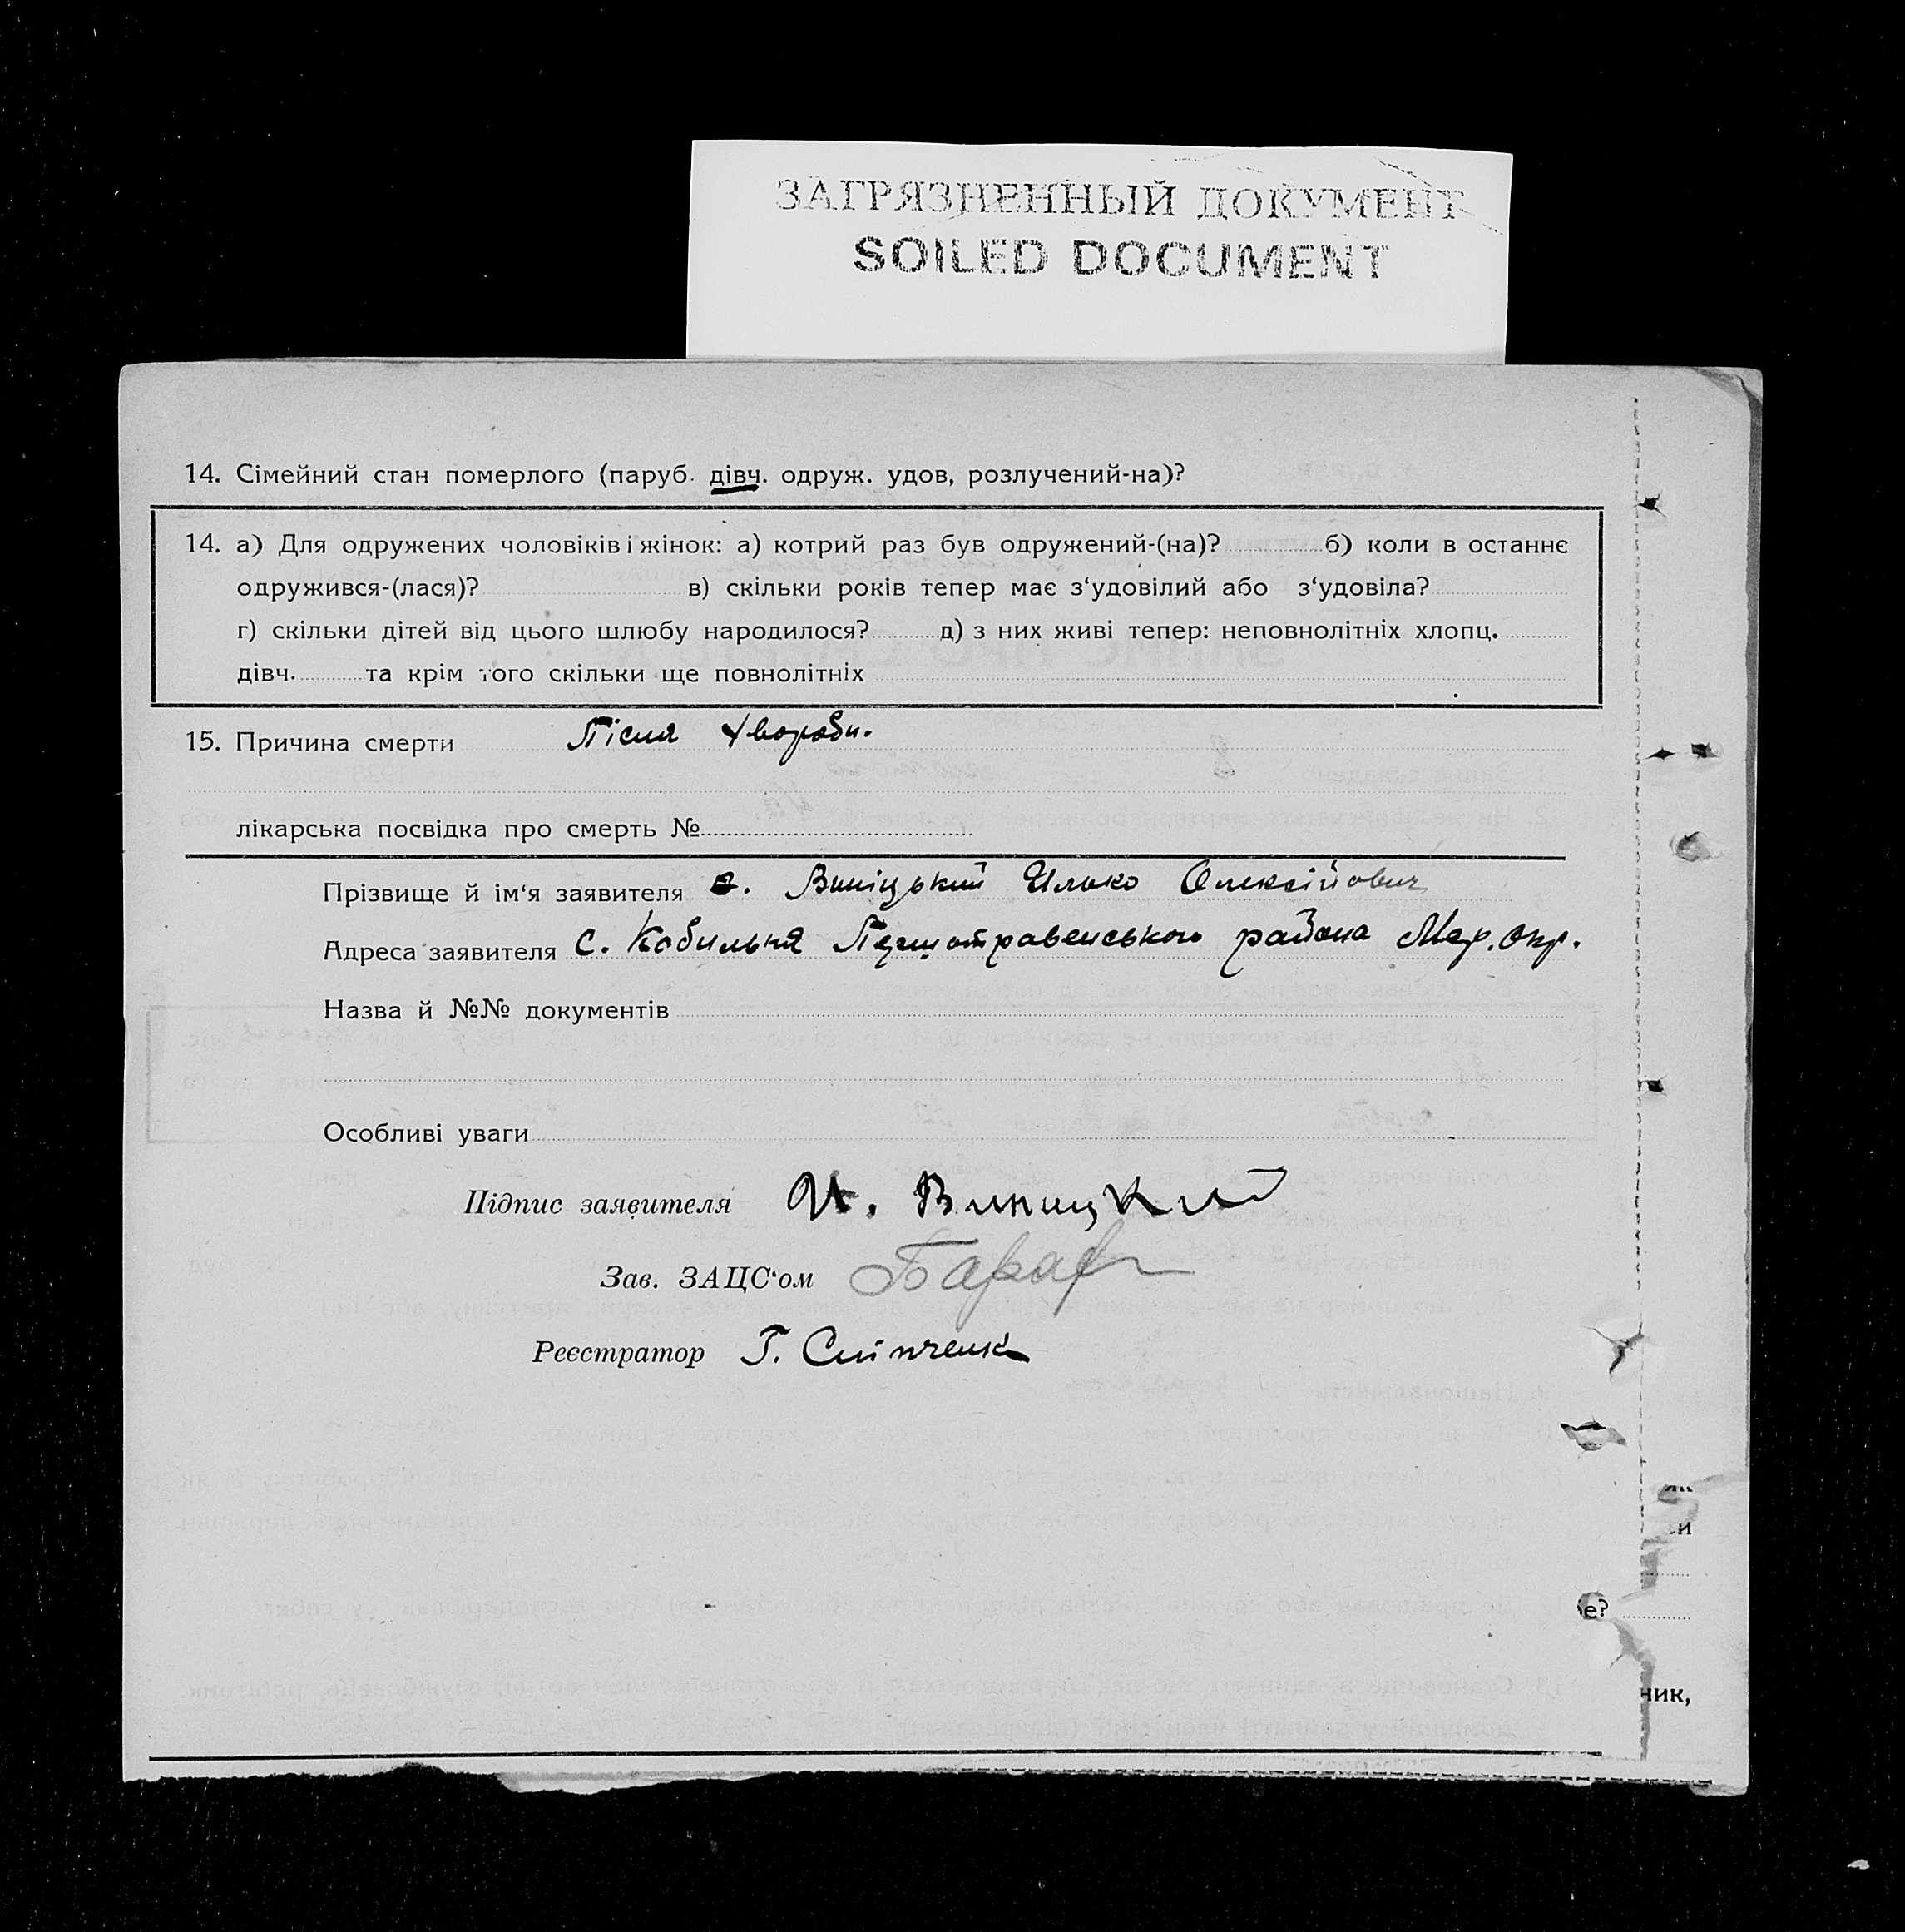 ЗАГРЯЗНЕННЫЙ ДОКУМЕНТ
SOILED DOCUMENT
14. Сімейний стан померлого (паруб. дівч. одруж. удов, розлучений-на)?
14. а) Для одружених чоловіків і жінок: а) котрий раз був одружений-(на)? б) коли в останнє
одружився-(лася)? в) скільки років тепер має з‘удовілий або з‘удовіла?
г) скільки дітей від цього шлюбу народилося? д) з них живі тепер: неповнолітніх хлопц.
дівч. та крім того скільки ще повнолітніх
15. Причина смерти Після хвороби.
лікарська посвідка про смерть №
Прізвище й ім‘я заявителя Виніцький Илько Олексійович
Адреса заявителя с. Кобильня Першотравенського района Мар. Окр.
Назва й №№ документів
Особливі уваги
Підпис заявителя И. Виницкий
Зав. ЗАЦС‘ом
Реєстратор Г.
як
и
бе?
ник,